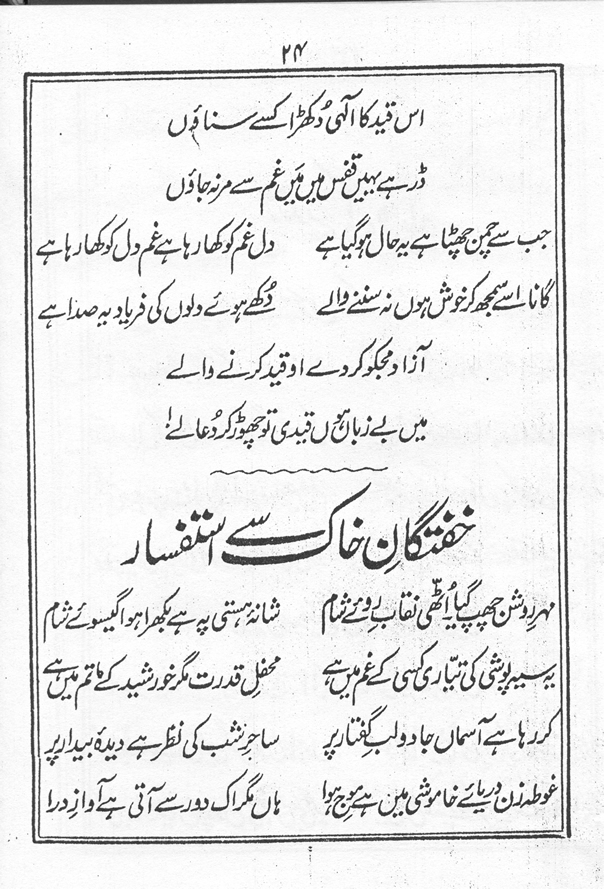 ۲۴
اس قید کا الٰہی دُکھڑا کسے سناؤں
ڈر ہے یہیں قفس میں مَیں غم سے مر نہ جاؤں
جب سے چمن چھٹا ہے یہ حال ہوگیا ہے دل غم کو کھا رہا ہے غم دل کو کھا رہا ہے
گانا اسے سمجھ کر خوش ہوں نہ سننے والے دُکھے ہوئے دلوں کی فریاد یہ صدا ہے
آزاد مجکو کردے او قید کرنے والے
میں بے زباں ہوں قیدی تو چھوڑ کر دُعا لے!
خفتگانِ خاک سے استفسار
مہرِ روشن چھپ گیا۔ اُٹھی نقابِ روئے شام شانۂ ہستی پہ ہے بکھرا ہوا گیسوئے شام
یہ سیہ پوشی کی تیّاری کسی کے غم میں ہے محفلِ قدرت مگر خورشید کے ماتم میں ہے
کر رہا ہے آسماں جادو لبِ گفتار پر ساحرِ شب کی نظر ہے دیدۂ بیدار پر
غوطہ زن دریائے خاموشی میں ہے موجِ ہوا ہاں مگر اک دور سے آتی ہے آوازِ درا